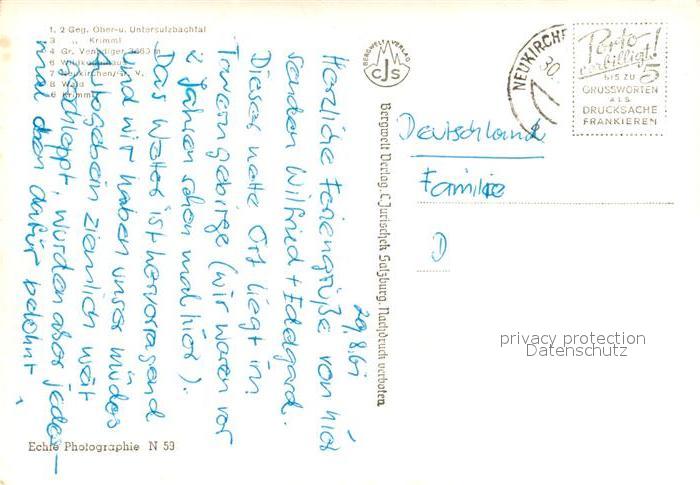 1, 2 Geg. Ober- u. Untersulzbachtal
3 „ Krimml
4 Gr. Venediger 3660 m
6 Wildkogelhaus
7 Neukirchen/Gr. V.
8 Wald
9 Krimml
29.8.61
Herzliche Feriengrüße von hier
senden Wilfried + Edelgard.
Dieser nette Ort liegt im
Tauerngebirge (wir waren vor
2 Jahren schon mal hier).
Das Wetter ist hervorragend
und wir haben unser müdes
Altersgebein ziemlich weit
geschleppt, wurden aber jedes-
mal dann dafür belohnt.
Echte Photographie N 53
BERGWELT VERLAG
CJS
Bergwelt Verlag, C. Jurischek Salzburg, Nachdruck verboten
NEUKIRCHE
30.
Porto
verbilligt!
BIS ZU
5
GRUSSWORTEN
ALS
DRUCKSACHE
FRANKIEREN
Deutschland
Familie
D
privacy protection
Datenschutz